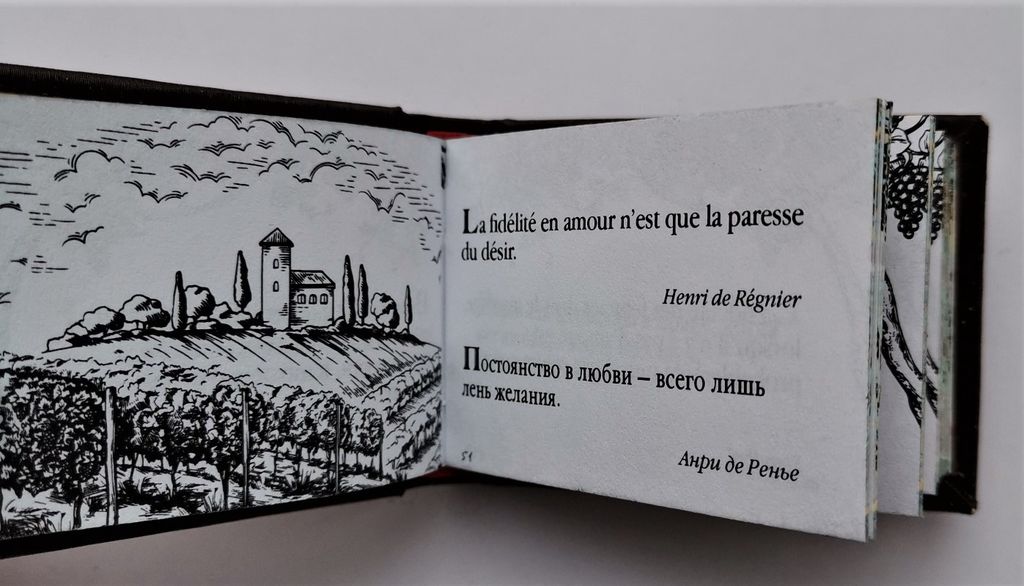 La fidélité en amour n'est que la paresse
du désir.
Henri de Régnier
Постоянство в любви – всего лишь
лень желания.
Анри де Ренье
51